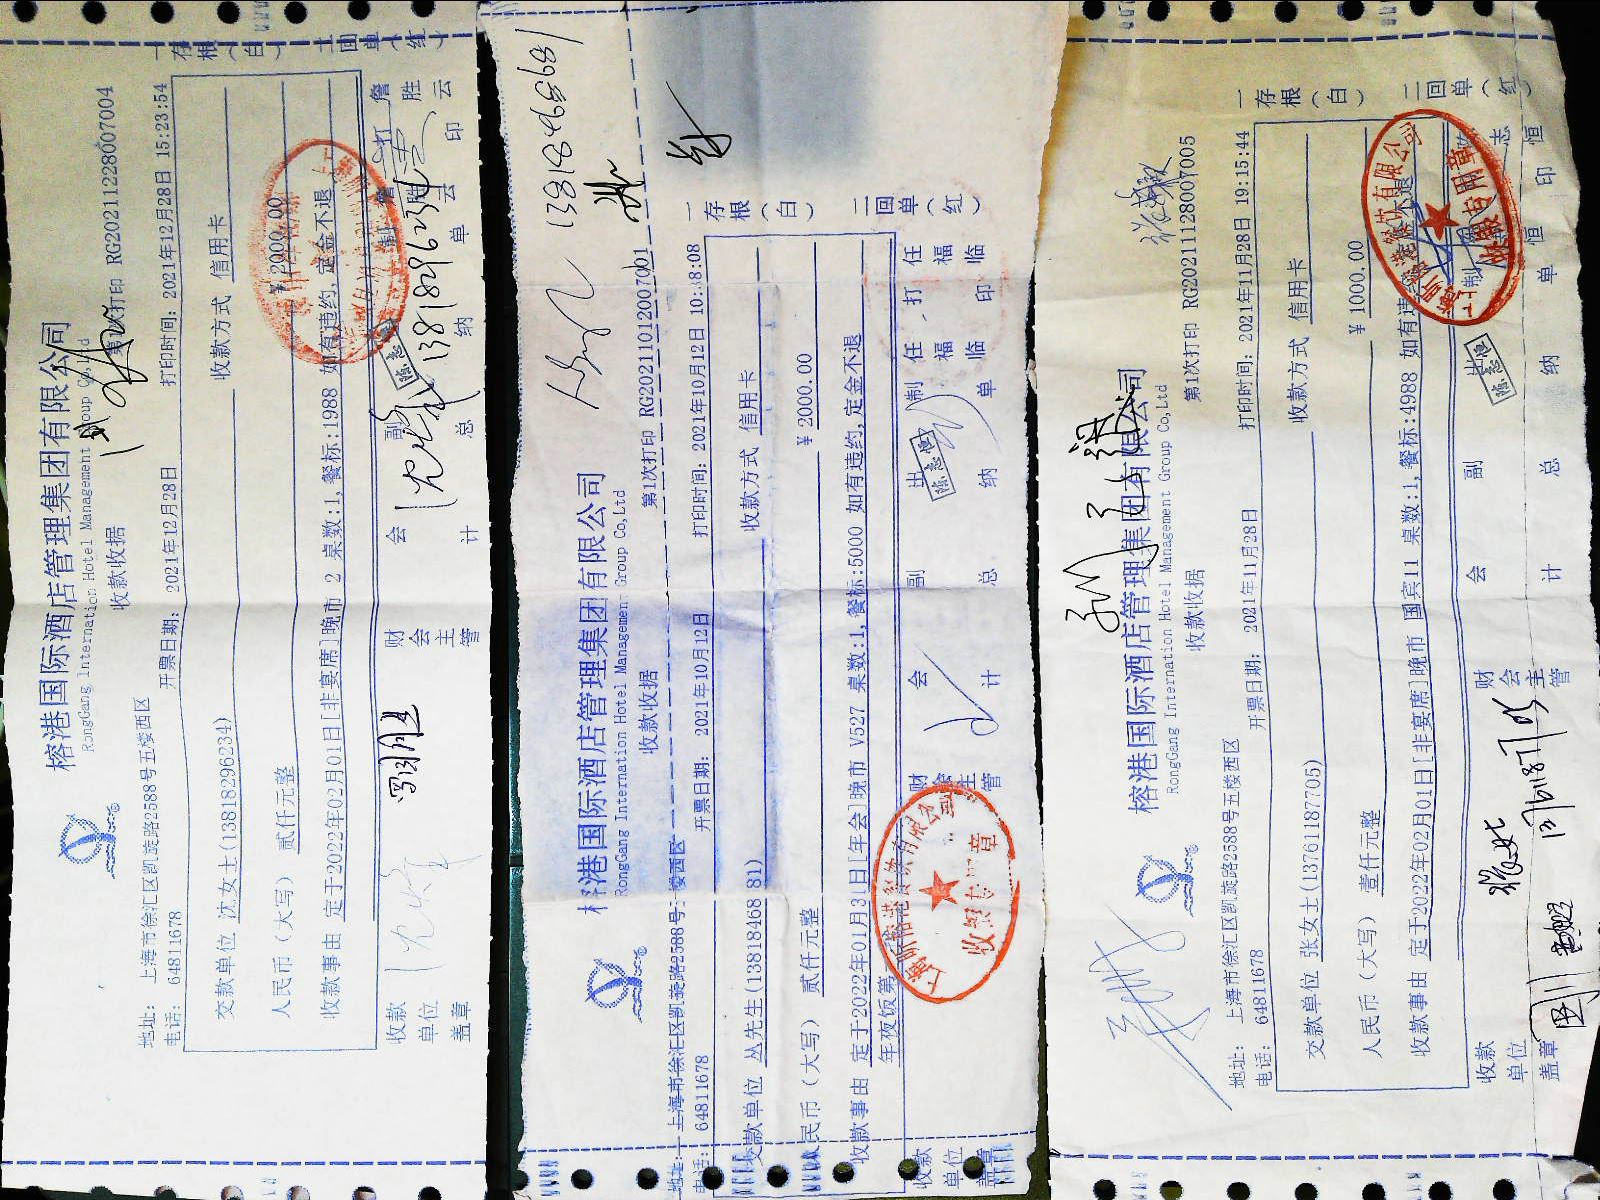 榕港国际酒店管理集团有限公司
RongGang International Hotel Management Group Co,Ltd
收款收据
RG20211228007004
地址: 上海市徐汇区凯旋路2588号五楼西区
电话: 64811678
开票日期: 2021年12月28日
打印时间: 2021年12月28日 15:23:54
交款单位 沈女士(13818296234)
收款方式 信用卡
人民币（大写） 贰仟元整
¥ 2000.00
收款事由 定于2022年02月01日[非宴席]晚市 2 桌数:1,餐标:1988 如有违约,定金不退
收款单位盖章
财会主管
会计
副总
出纳
制单
打印
詹胜云
13818296234
一存根（白）
二回单（红）
榕港国际酒店管理集团有限公司
RongGang International Hotel Management Group Co,Ltd
收款收据
第1次打印 RG20211012007001
地址: 上海市徐汇区凯旋路2588号五楼西区
电话: 64811678
开票日期: 2021年10月12日
打印时间: 2021年10月12日 10:38:08
交款单位 丛先生(13818468681)
收款方式 信用卡
人民币（大写） 贰仟元整
¥ 2000.00
收款事由 定于2022年01月31日[年会]晚市 V527 桌数:1,餐标:5000 如有违约,定金不退
年夜饭第
收款单位盖章
财会主管
会计
副总
出纳
陈志恒
制单 任福临
打印 任福临
一存根（白）
二回单（红）
13818468681
榕港国际酒店管理集团有限公司
RongGang International Hotel Management Group Co,Ltd
收款收据
第1次打印 RG20211128007005
地址: 上海市徐汇区凯旋路2588号五楼西区
电话: 64811678
开票日期: 2021年11月28日
打印时间: 2021年11月28日 19:15:44
交款单位 张女士(13761187705)
收款方式 信用卡
人民币（大写） 壹仟元整
¥ 1000.00
收款事由 定于2022年02月01日[非宴席]晚市 国宾11 桌数:1,餐标:4988 如有违约,定金不退
收款单位盖章
财会主管
会计
副总
出纳
陈志恒
制单
打印
一存根（白）
二回单（红）